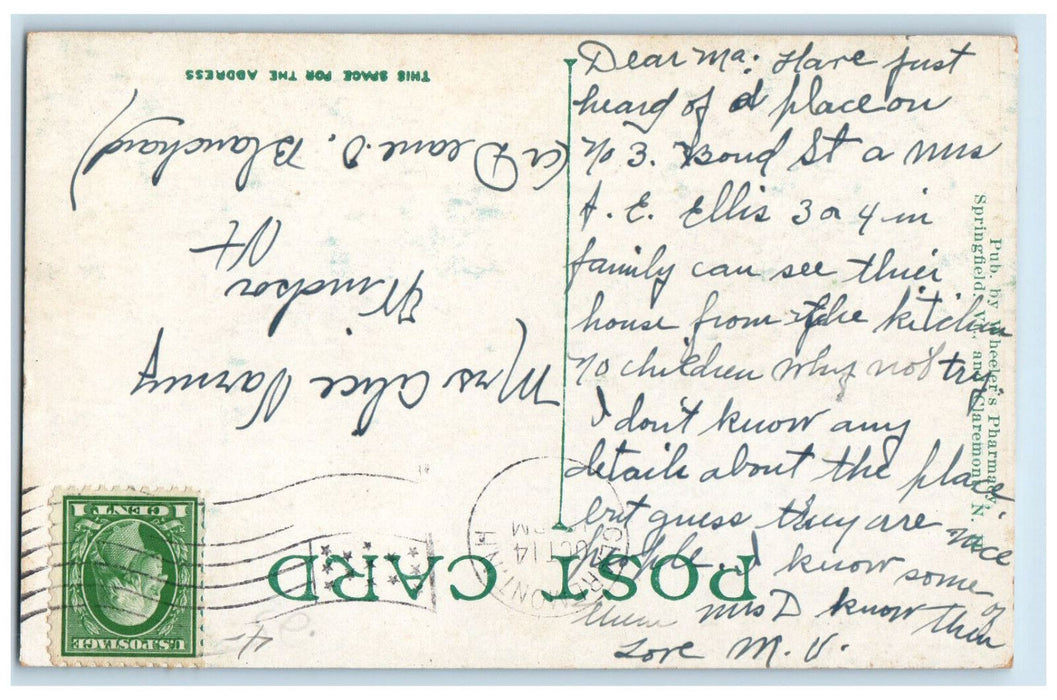 Dear Ma: Have just
heard of a place on
No 3. Bond St a Mrs
A. E. Ellis 3 or 4 in
family can see thier
house from the kitchen
No children why not try
I don't know any
details about the place
but guess they are nice
people. I know some of
them Mrs D know them
Love M. V.
POST CARD
THIS SPACE FOR THE ADDRESS
Mrs Alice Varney
Windsor
Vt
(C/o Deane O. Blanchard)
Pub. by Wheeler's Pharmacy,
Springfield, Vt., and Claremont, N. H.
U.S. POSTAGE
1 CENT 1
CLAREMONT, N.H.
OCT 14
PM